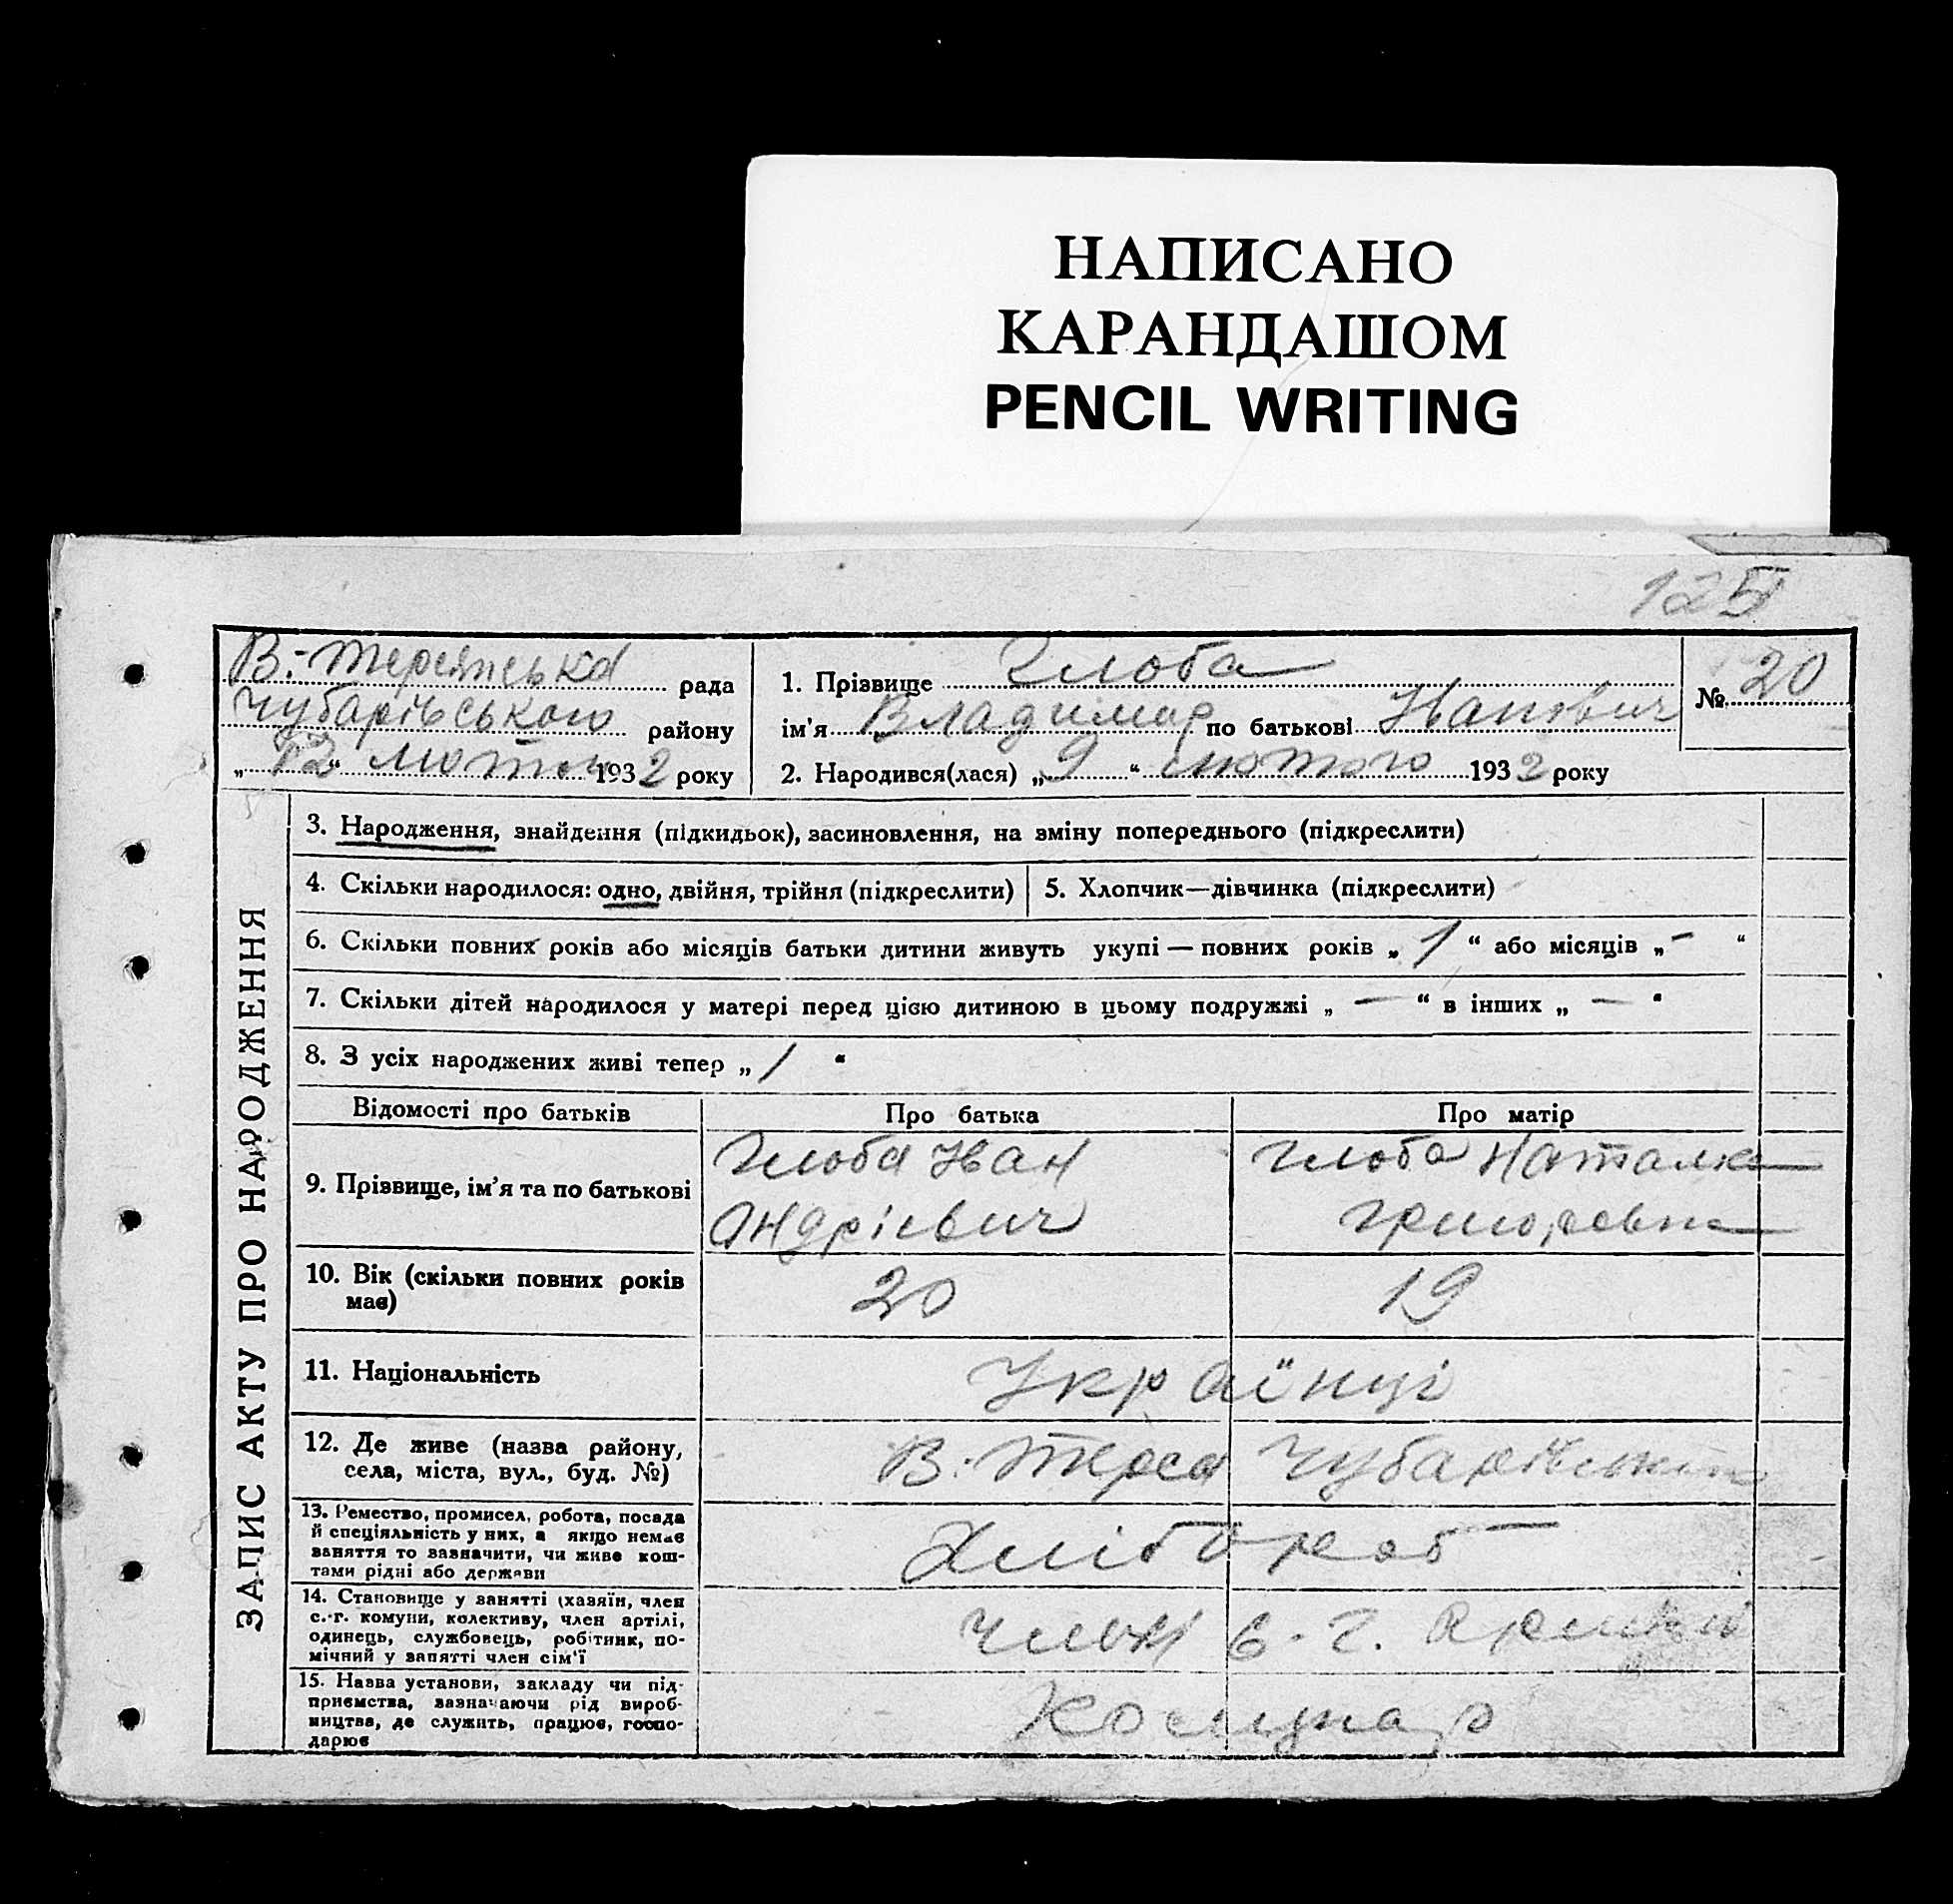 НАПИСАНО
КАРАНДАШОМ
PENCIL WRITING
125
В.-Терсянська рада
Чубарівського району
„12“ лютого 1932 року
1. Прізвище Глоба
ім'я Владимир по батькові Іванович
№ 20
2. Народився(лася) „9“ лютого 1932 року
ЗАПИС АКТУ ПРО НАРОДЖЕННЯ
3. Народження, знайдення (підкидьок), засиновлення, на зміну попереднього (підкреслити)
4. Скільки народилося: одно, двійня, трійня (підкреслити)
5. Хлопчик—дівчинка (підкреслити)
6. Скільки повних років або місяців батьки дитини живуть укупі — повних років „1“ або місяців „-“
7. Скільки дітей народилося у матері перед цією дитиною в цьому подружжі „—“ в інших „—“
8. З усіх народжених живі тепер „1“
Відомості про батьків
Про батька
Про матір
9. Прізвище, ім'я та по батькові
Глоба Іван
Андрієвич
Глоба Наталка
10. Вік (скільки повних років
має)
20
19
11. Національність
Українці
12. Де живе (назва району,
села, міста, вул., буд. №)
В. Терса Чубарівський
13. Ремество, промисел, робота, посада
й спеціяльність у них, а якщо немає
заняття то зазначити, чи живе кош-
тами рідні або держави
Хлібороб
14. Становище у занятті (хазяїн, член
с.-г. комуни, колективу, член артілі,
одинець, службовець, робітник, по-
мічний у занятті член сім'ї
с.-г.
15. Назва установи, закладу чи під-
приємства, зазначаючи рід вироб-
ництва, де служить, працює, госпо-
дарює